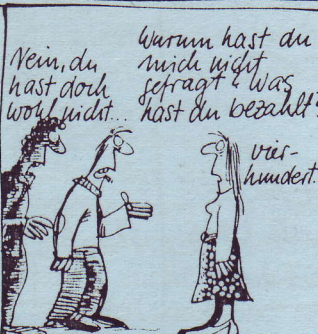 Nein, du
hast doch
wohl nicht...
Warum hast du
mich nicht
gefragt? Was
hast du bezahlt?
vier-
hundert.